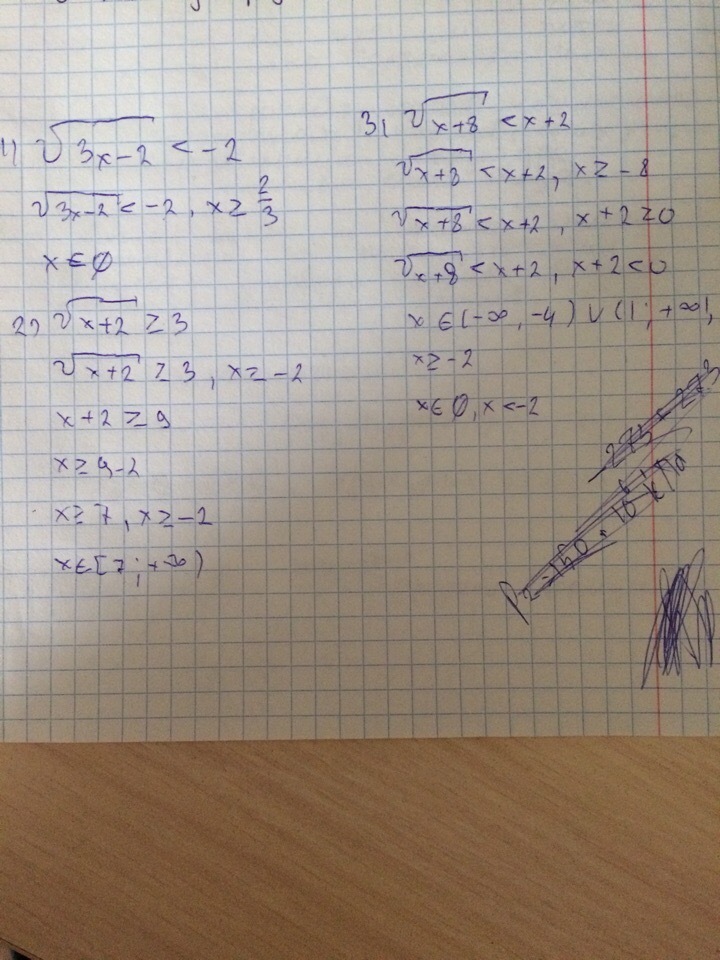 1) √3x-2 < -2
√3x-2 < -2, x ≥ 2/3
x ∈ ∅
2) √x+2 ≥ 3
√x+2 ≥ 3, x ≥ -2
x+2 ≥ 9
x ≥ 9-2
x ≥ 7, x ≥ -2
x ∈ [7; +∞)
3) √x+8 < x+2
√x+8 < x+2, x ≥ -8
√x+8 < x+2, x+2 ≥ 0
√x+8 < x+2, x+2 < 0
x ∈ (-∞, -4) ∪ (1; +∞),
x ≥ -2
x ∈ ∅, x < -2